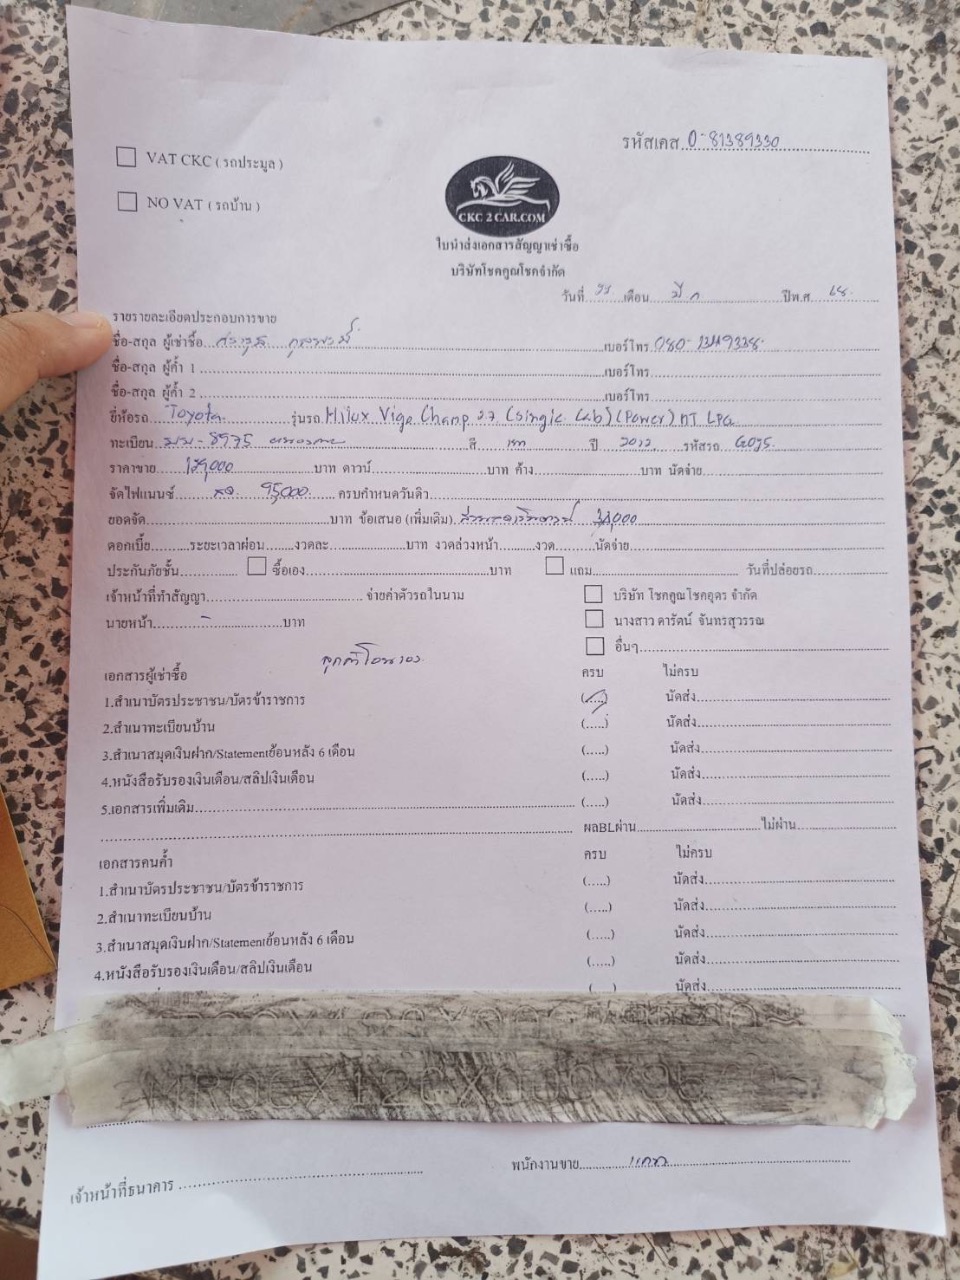 รหัสเคส 0-81389330
VAT CKC ( รถประมูล )
NO VAT ( รถบ้าน )
CKC 2 CAR.COM
ใบนำส่งเอกสารสัญญาเช่าซื้อ
บริษัทโชคคูณโชคจำกัด
วันที่ เดือน มี.ค ปีพ.ศ. 68
รายรายละเอียดประกอบการขาย
ชื่อ-สกุล ผู้เช่าซื้อ เบอร์โทร
ชื่อ-สกุล ผู้ค้ำ 1 เบอร์โทร
ชื่อ-สกุล ผู้ค้ำ 2 เบอร์โทร
ยี่ห้อรถ Toyota รุ่นรถ Hilux Vigo Champ 2.7 (Single Cab) (Power) MT LPG
ทะเบียน สี เทา ปี 2012 รหัสรถ
ราคาขาย บาท ดาวน์ บาท ค้าง บาท นัดจ่าย
จัดไฟแนนซ์ 95,000 ครบกำหนดวันดิว
ยอดจัด บาท ข้อเสนอ (เพิ่มเติม)
ดอกเบี้ย ระยะเวลาผ่อน งวดละ บาท งวดล่วงหน้า งวด นัดจ่าย
ประกันภัยชั้น ซื้อเอง บาท แถม วันที่ปล่อยรถ
เจ้าหน้าที่ทำสัญญา จ่ายค่าตัวรถในนาม บริษัท โชคคูณโชคอุดร จำกัด
นายหน้า - บาท นางสาว ดารัตน์ จันทรสุวรรณ
อื่นๆ
ลูกค้าโอนเอง
เอกสารผู้เช่าซื้อ ครบ ไม่ครบ
1.สำเนาบัตรประชาชน/บัตรข้าราชการ (....) นัดส่ง
2.สำเนาทะเบียนบ้าน (....) นัดส่ง
3.สำเนาสมุดเงินฝาก/Statementย้อนหลัง 6 เดือน (....) นัดส่ง
4.หนังสือรับรองเงินเดือน/สลิปเงินเดือน (....) นัดส่ง
5.เอกสารเพิ่มเติม (....) นัดส่ง
ผลBLผ่าน ไม่ผ่าน
เอกสารคนค้ำ ครบ ไม่ครบ
1.สำเนาบัตรประชาชน/บัตรข้าราชการ (.....) นัดส่ง
2.สำเนาทะเบียนบ้าน (.....) นัดส่ง
3.สำเนาสมุดเงินฝาก/Statementย้อนหลัง 6 เดือน (.....) นัดส่ง
4.หนังสือรับรองเงินเดือน/สลิปเงินเดือน (.....) นัดส่ง
นัดส่ง
พนักงานขาย
เจ้าหน้าที่ธนาคาร